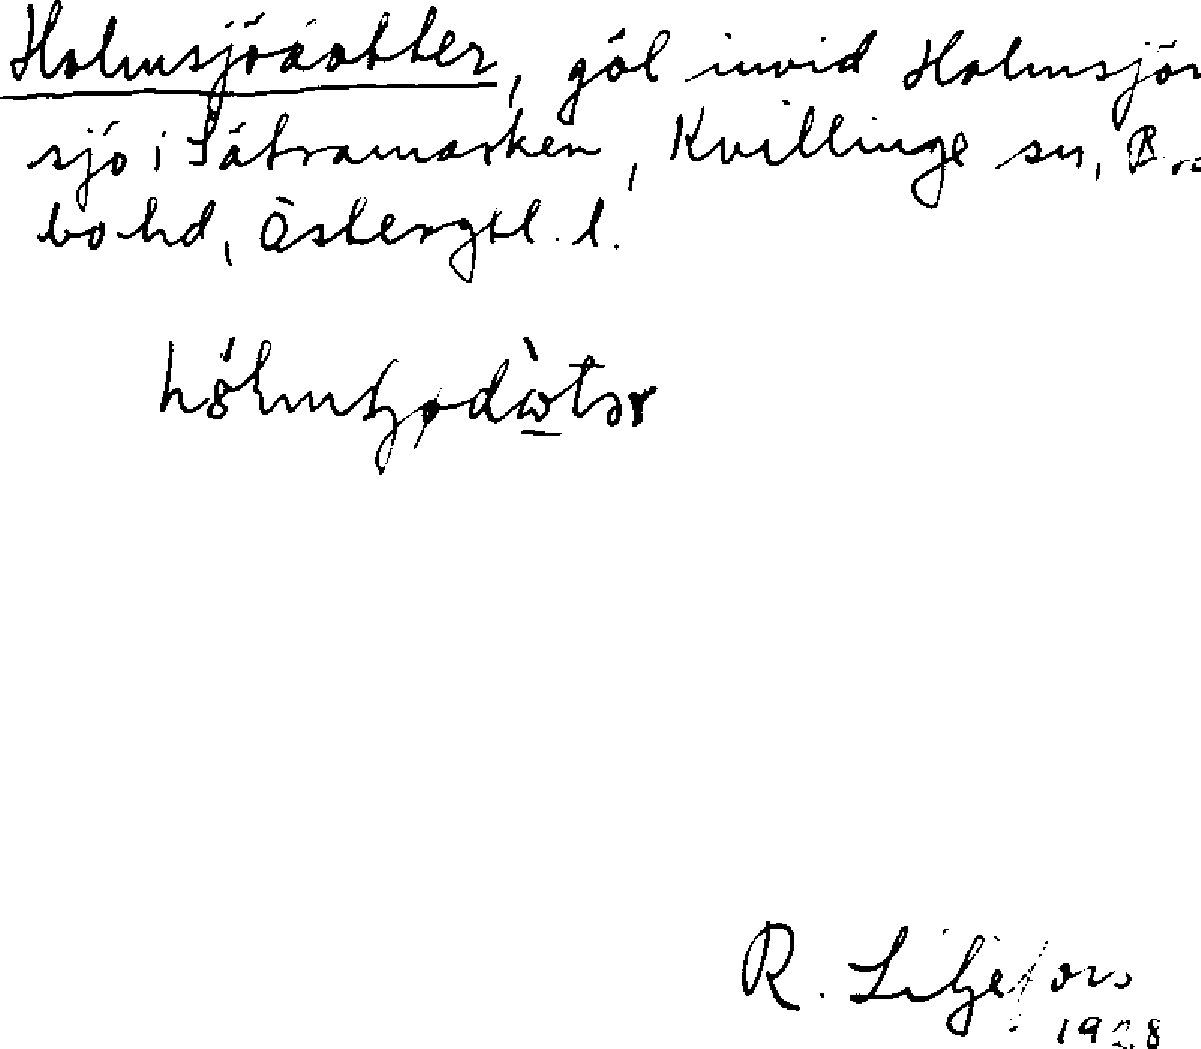 Holmsjödotter, göl invid Holmsjön
sjö i Sätramarken, Kvillinge sn, Br
bo hd, Östergtl. l.
R. Liljefors
1928